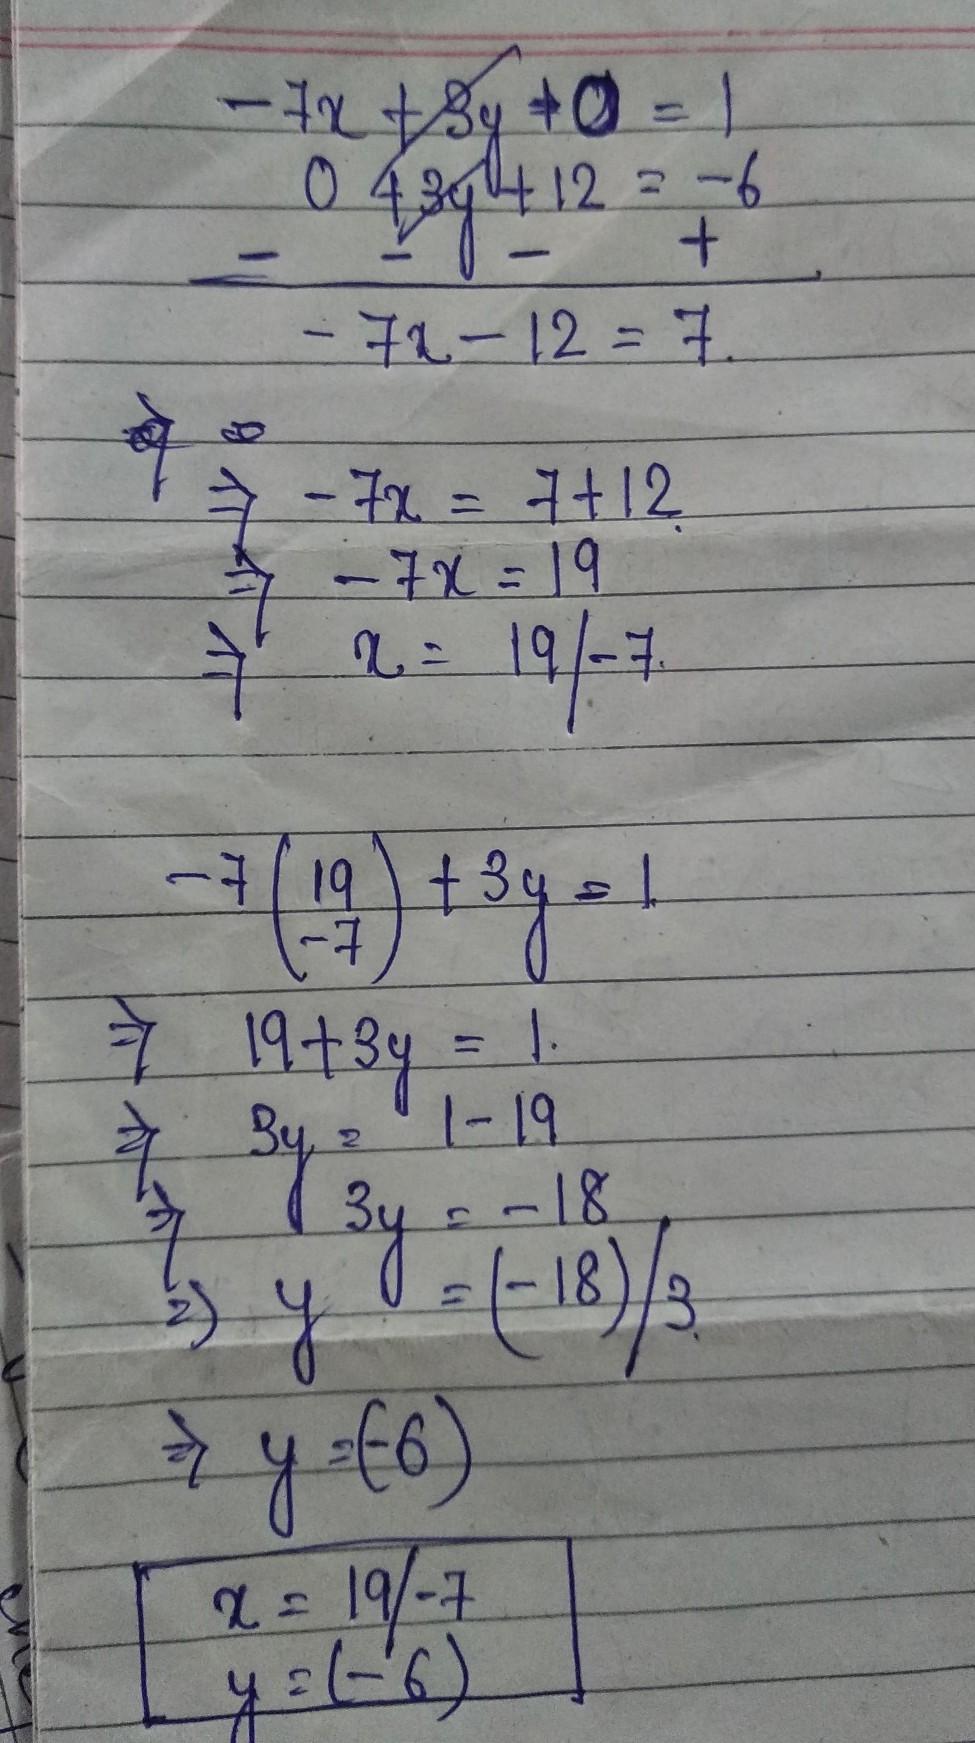 -7x + 3y + 0 = 1
0 + 3y + 12 = -6
- - - +
-7x - 12 = 7.
⇒ -7x = 7+12.
⇒ -7x = 19
⇒ x = 19/-7.
-7(19/-7) + 3y = 1.
⇒ 19+3y = 1.
⇒ 3y = 1-19
⇒ 3y = -18
⇒ y = (-18)/3.
⇒ y = (-6)
x = 19/-7
y = (-6)